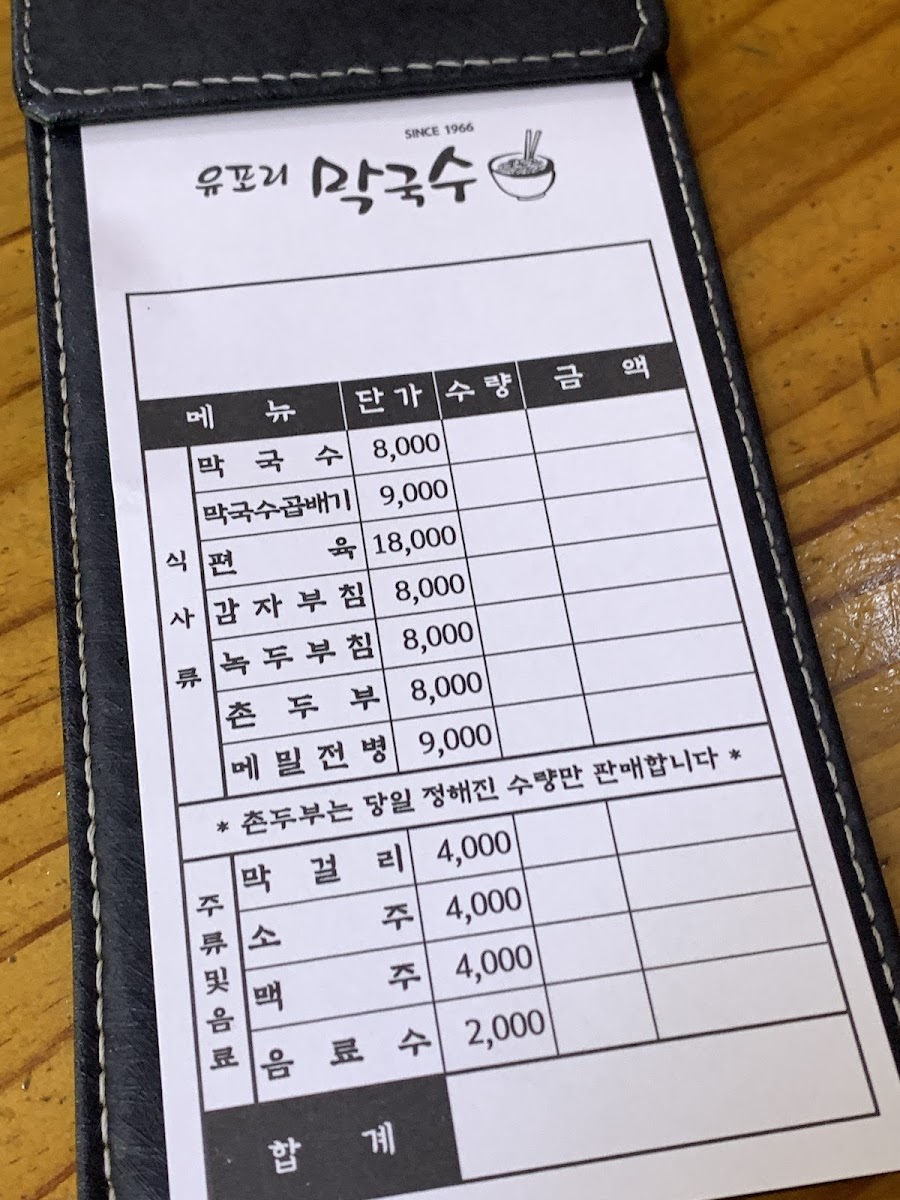 SINCE 1966
유포리 막국수
메뉴 단가 수량 금액
식사류
막국수 8,000
막국수곱배기 9,000
편육 18,000
감자부침 8,000
녹두부침 8,000
촌두부 8,000
메밀전병 9,000
* 촌두부는 당일 정해진 수량만 판매합니다 *
주류및음료
막걸리 4,000
소주 4,000
맥주 4,000
음료수 2,000
합계